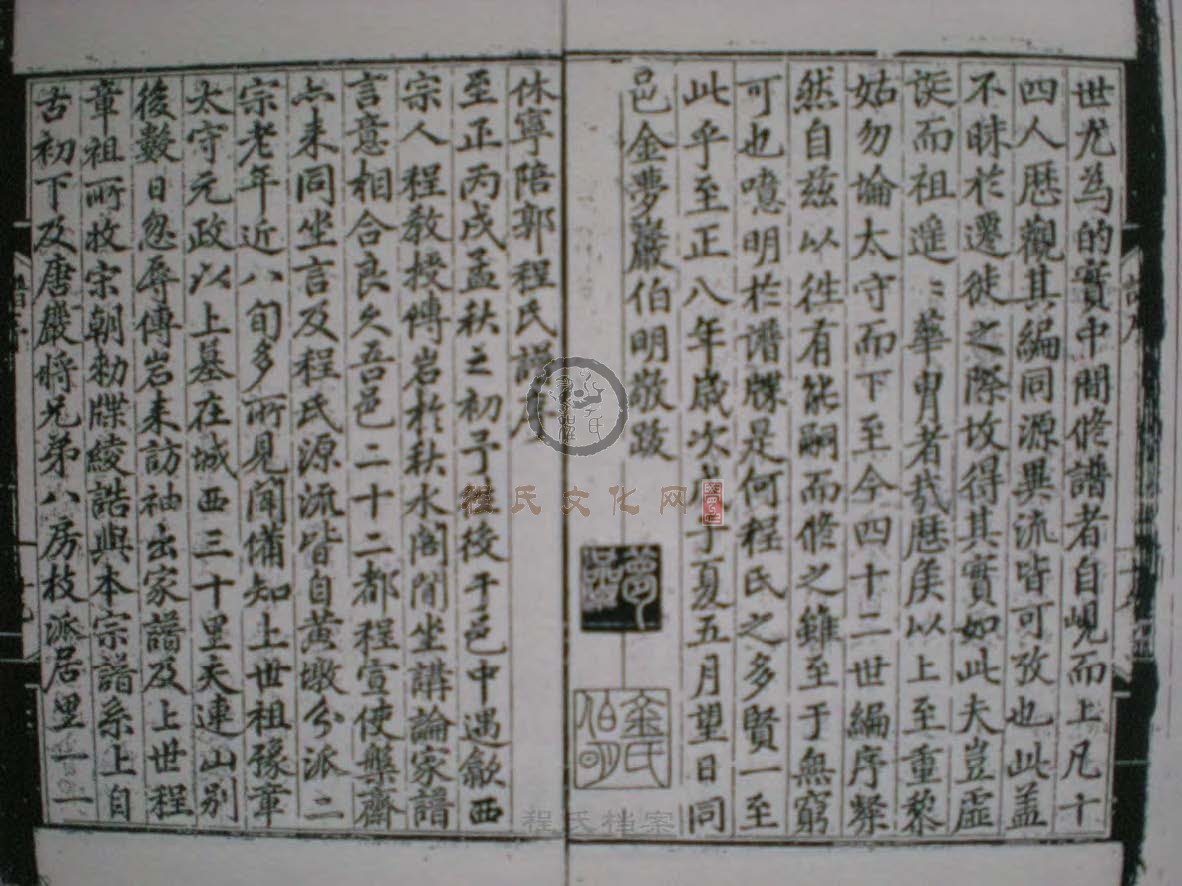 世尤為的實中間脩譜者自峴而上凡十
四人歷觀其編同源異流皆可攷也此盖
不昧於遷徙之際故得其實如此夫豈虛
誕而祖遥〻華胄者㢤歷矦以上至重黎
姑勿論太守而下至今四十二世編序粲
然自兹以徃有能嗣而修之雖至于無窮
可也噫明於譜牒是何程氏之多賢一至
此乎至正八年歲次戊子夏五月望日同
邑金夢巖伯明敬跋
夢
金氏
伯明
休寧陪郭程氏譜
至正丙戌孟秋之初予徃後干邑中遇歙西
宗人程教授傅岩於秋水閣閒坐講論家譜
言意相合良久吾邑二十二都程宣使樂齋
亦来同坐言及程氏源流皆自黄墩分派二
宗老年近八旬多所見聞備知上世祖豫章
太守元政以上墓在城西三十里天連山别
後數日忽辱傅岩来訪袖出家譜及上世程
章祖所收宗朝勑牒綾誥與本宗譜系上自
古初下及唐嚴將兄弟八房枝派居里一一
程氏文化网
程氏档案